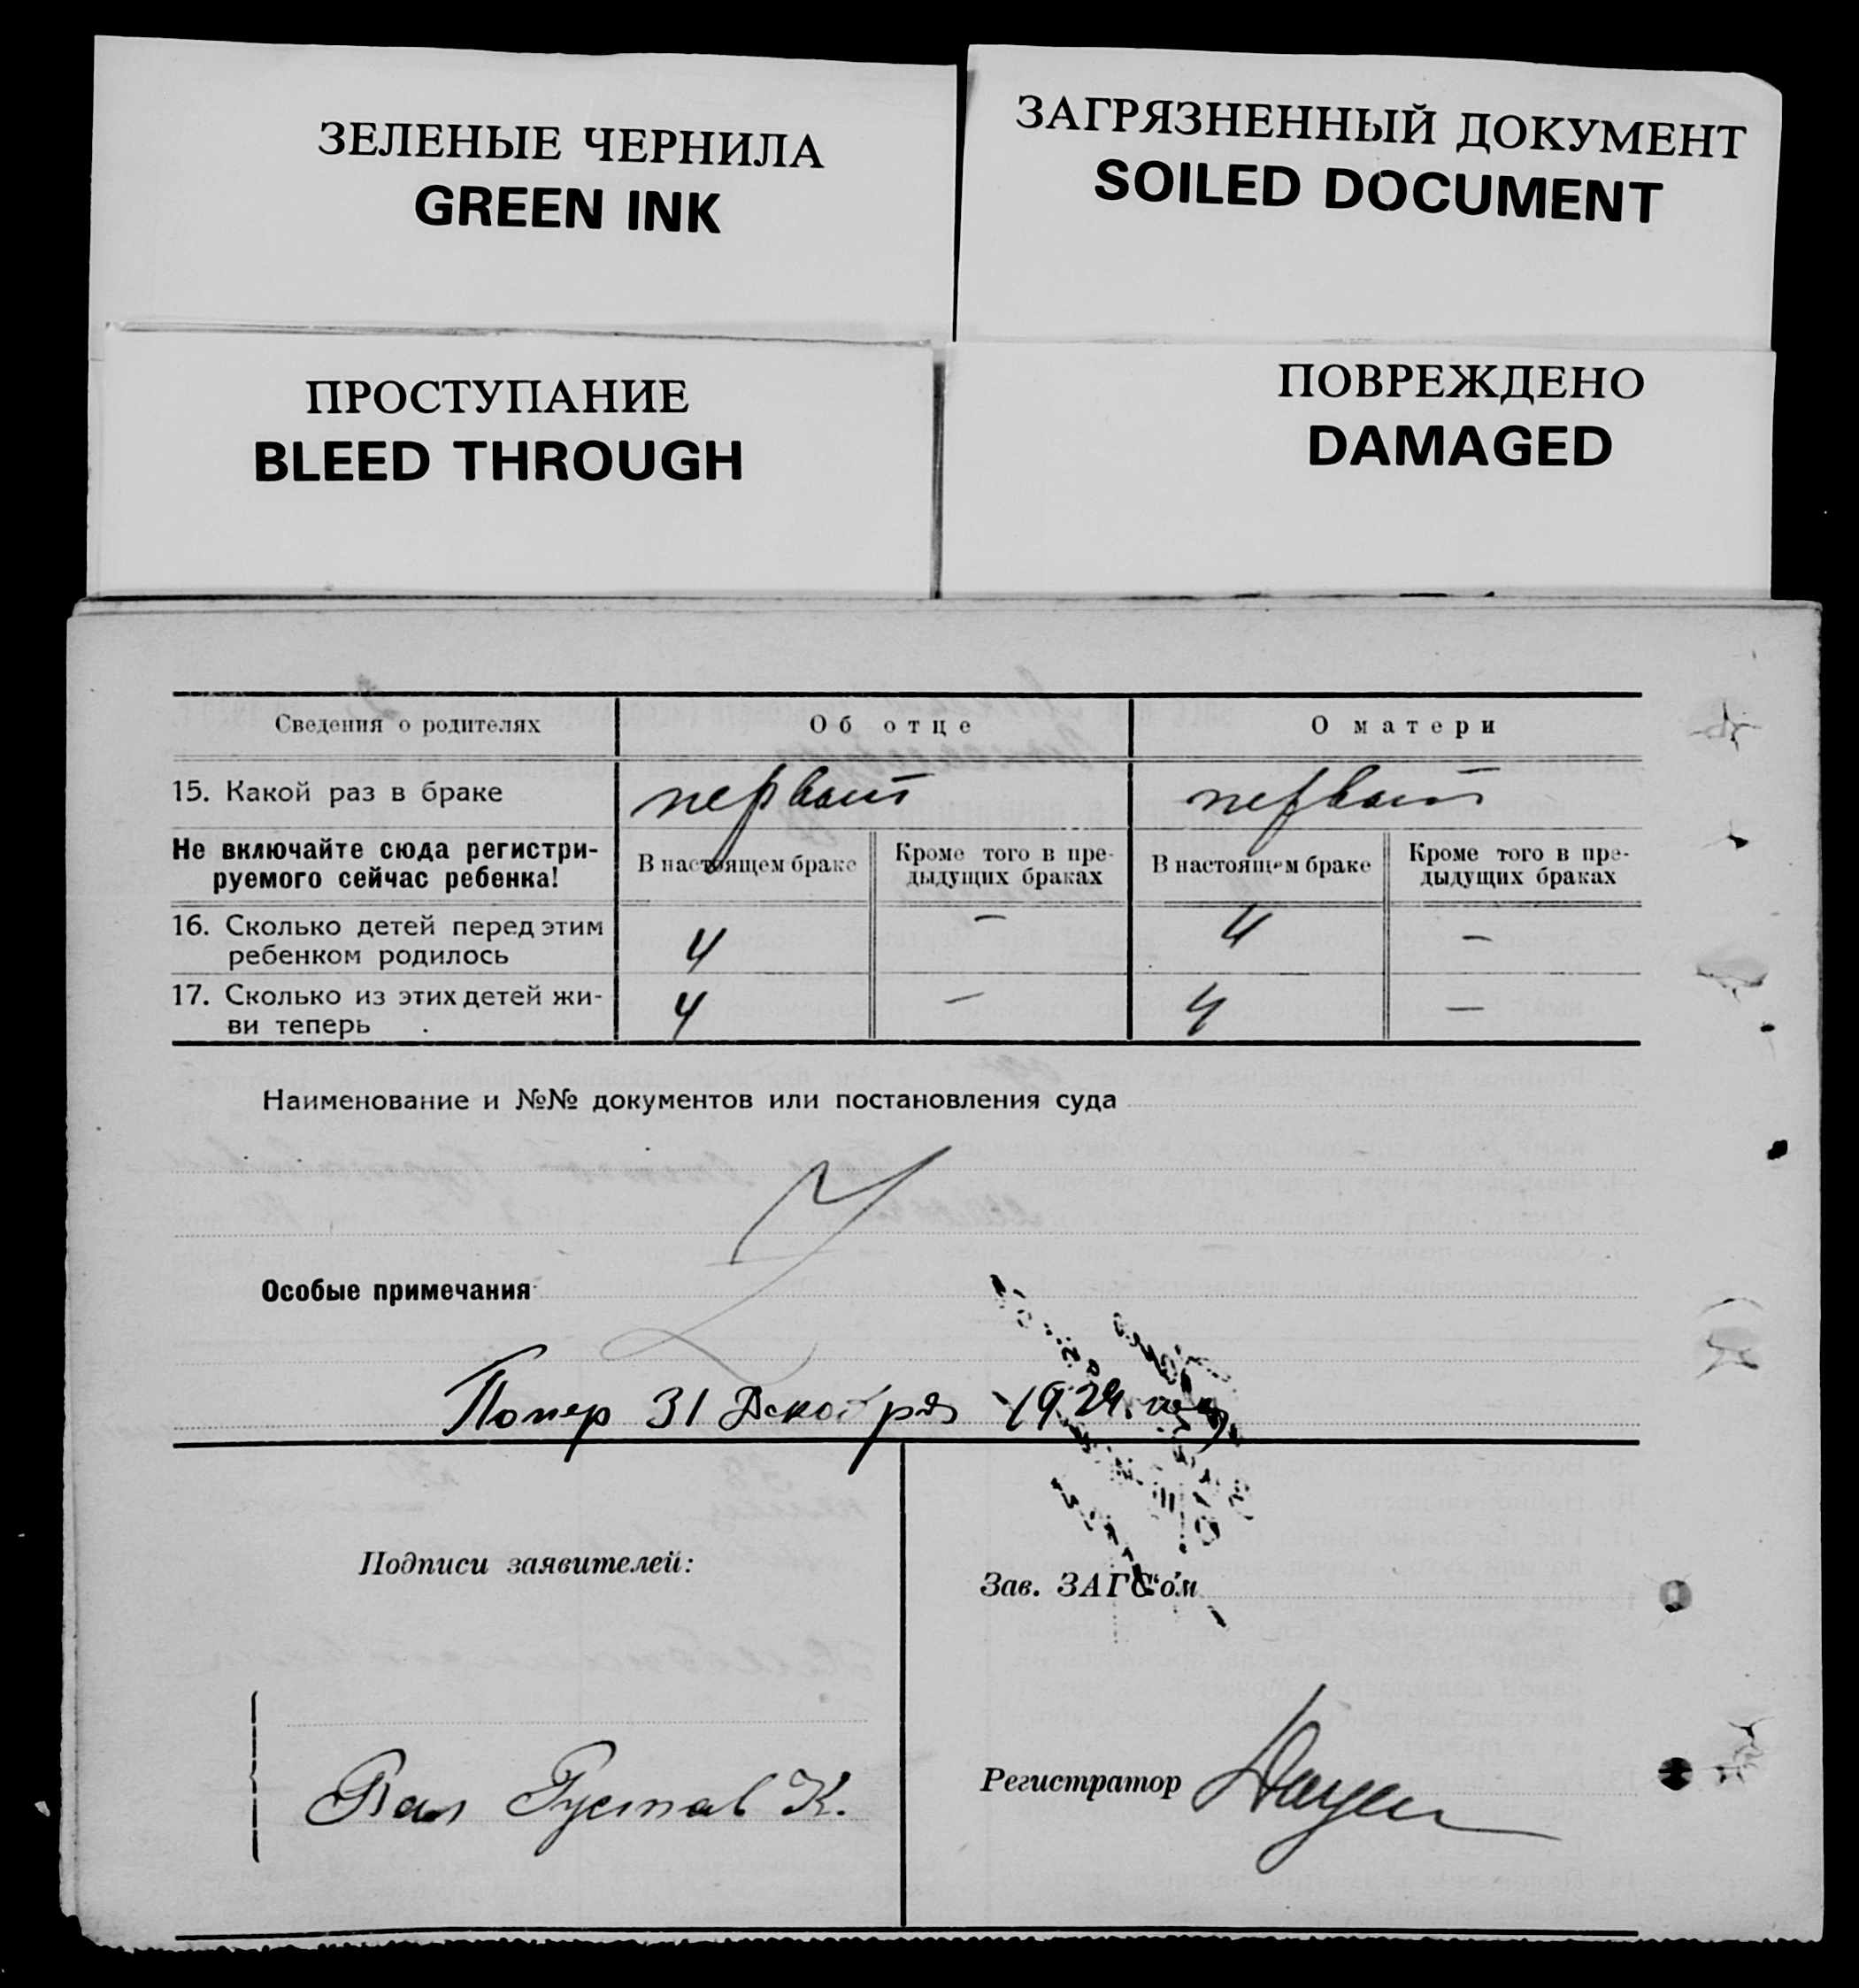 ЗЕЛЕНЫЕ ЧЕРНИЛА
GREEN INK
ЗАГРЯЗНЕННЫЙ ДОКУМЕНТ
SOILED DOCUMENT
ПРОСТУПАНИЕ
BLEED THROUGH
ПОВРЕЖДЕНО
DAMAGED
Сведения о родителях Об отце О матери
15. Какой раз в браке первый первый
Не включайте сюда регистри-
руемого сейчас ребенка!
В настоящем браке
Кроме того в пре-
дыдущих браках
В настоящем браке
Кроме того в пре-
дыдущих браках
16. Сколько детей перед этим
ребенком родилось 4 — 4 —
17. Сколько из этих детей жи-
ви теперь 4 — 4 —
Наименование и №№ документов или постановления суда
Особые примечания
Помер 31 Декабря 1924
Подписи заявителей:
Зав. ЗАГС'ом
Густав К.
Регистратор